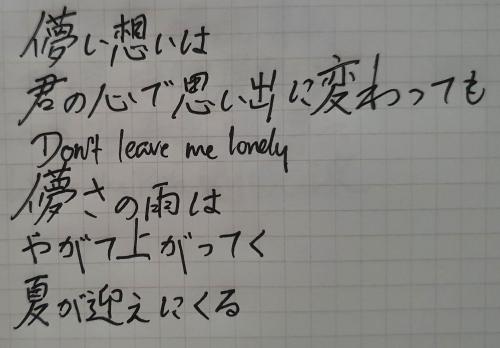 儚い想いは
君の心で思い出に変わっても
Don't leave me lonely
儚さの雨は
やがて上がってく
夏が迎えにくる